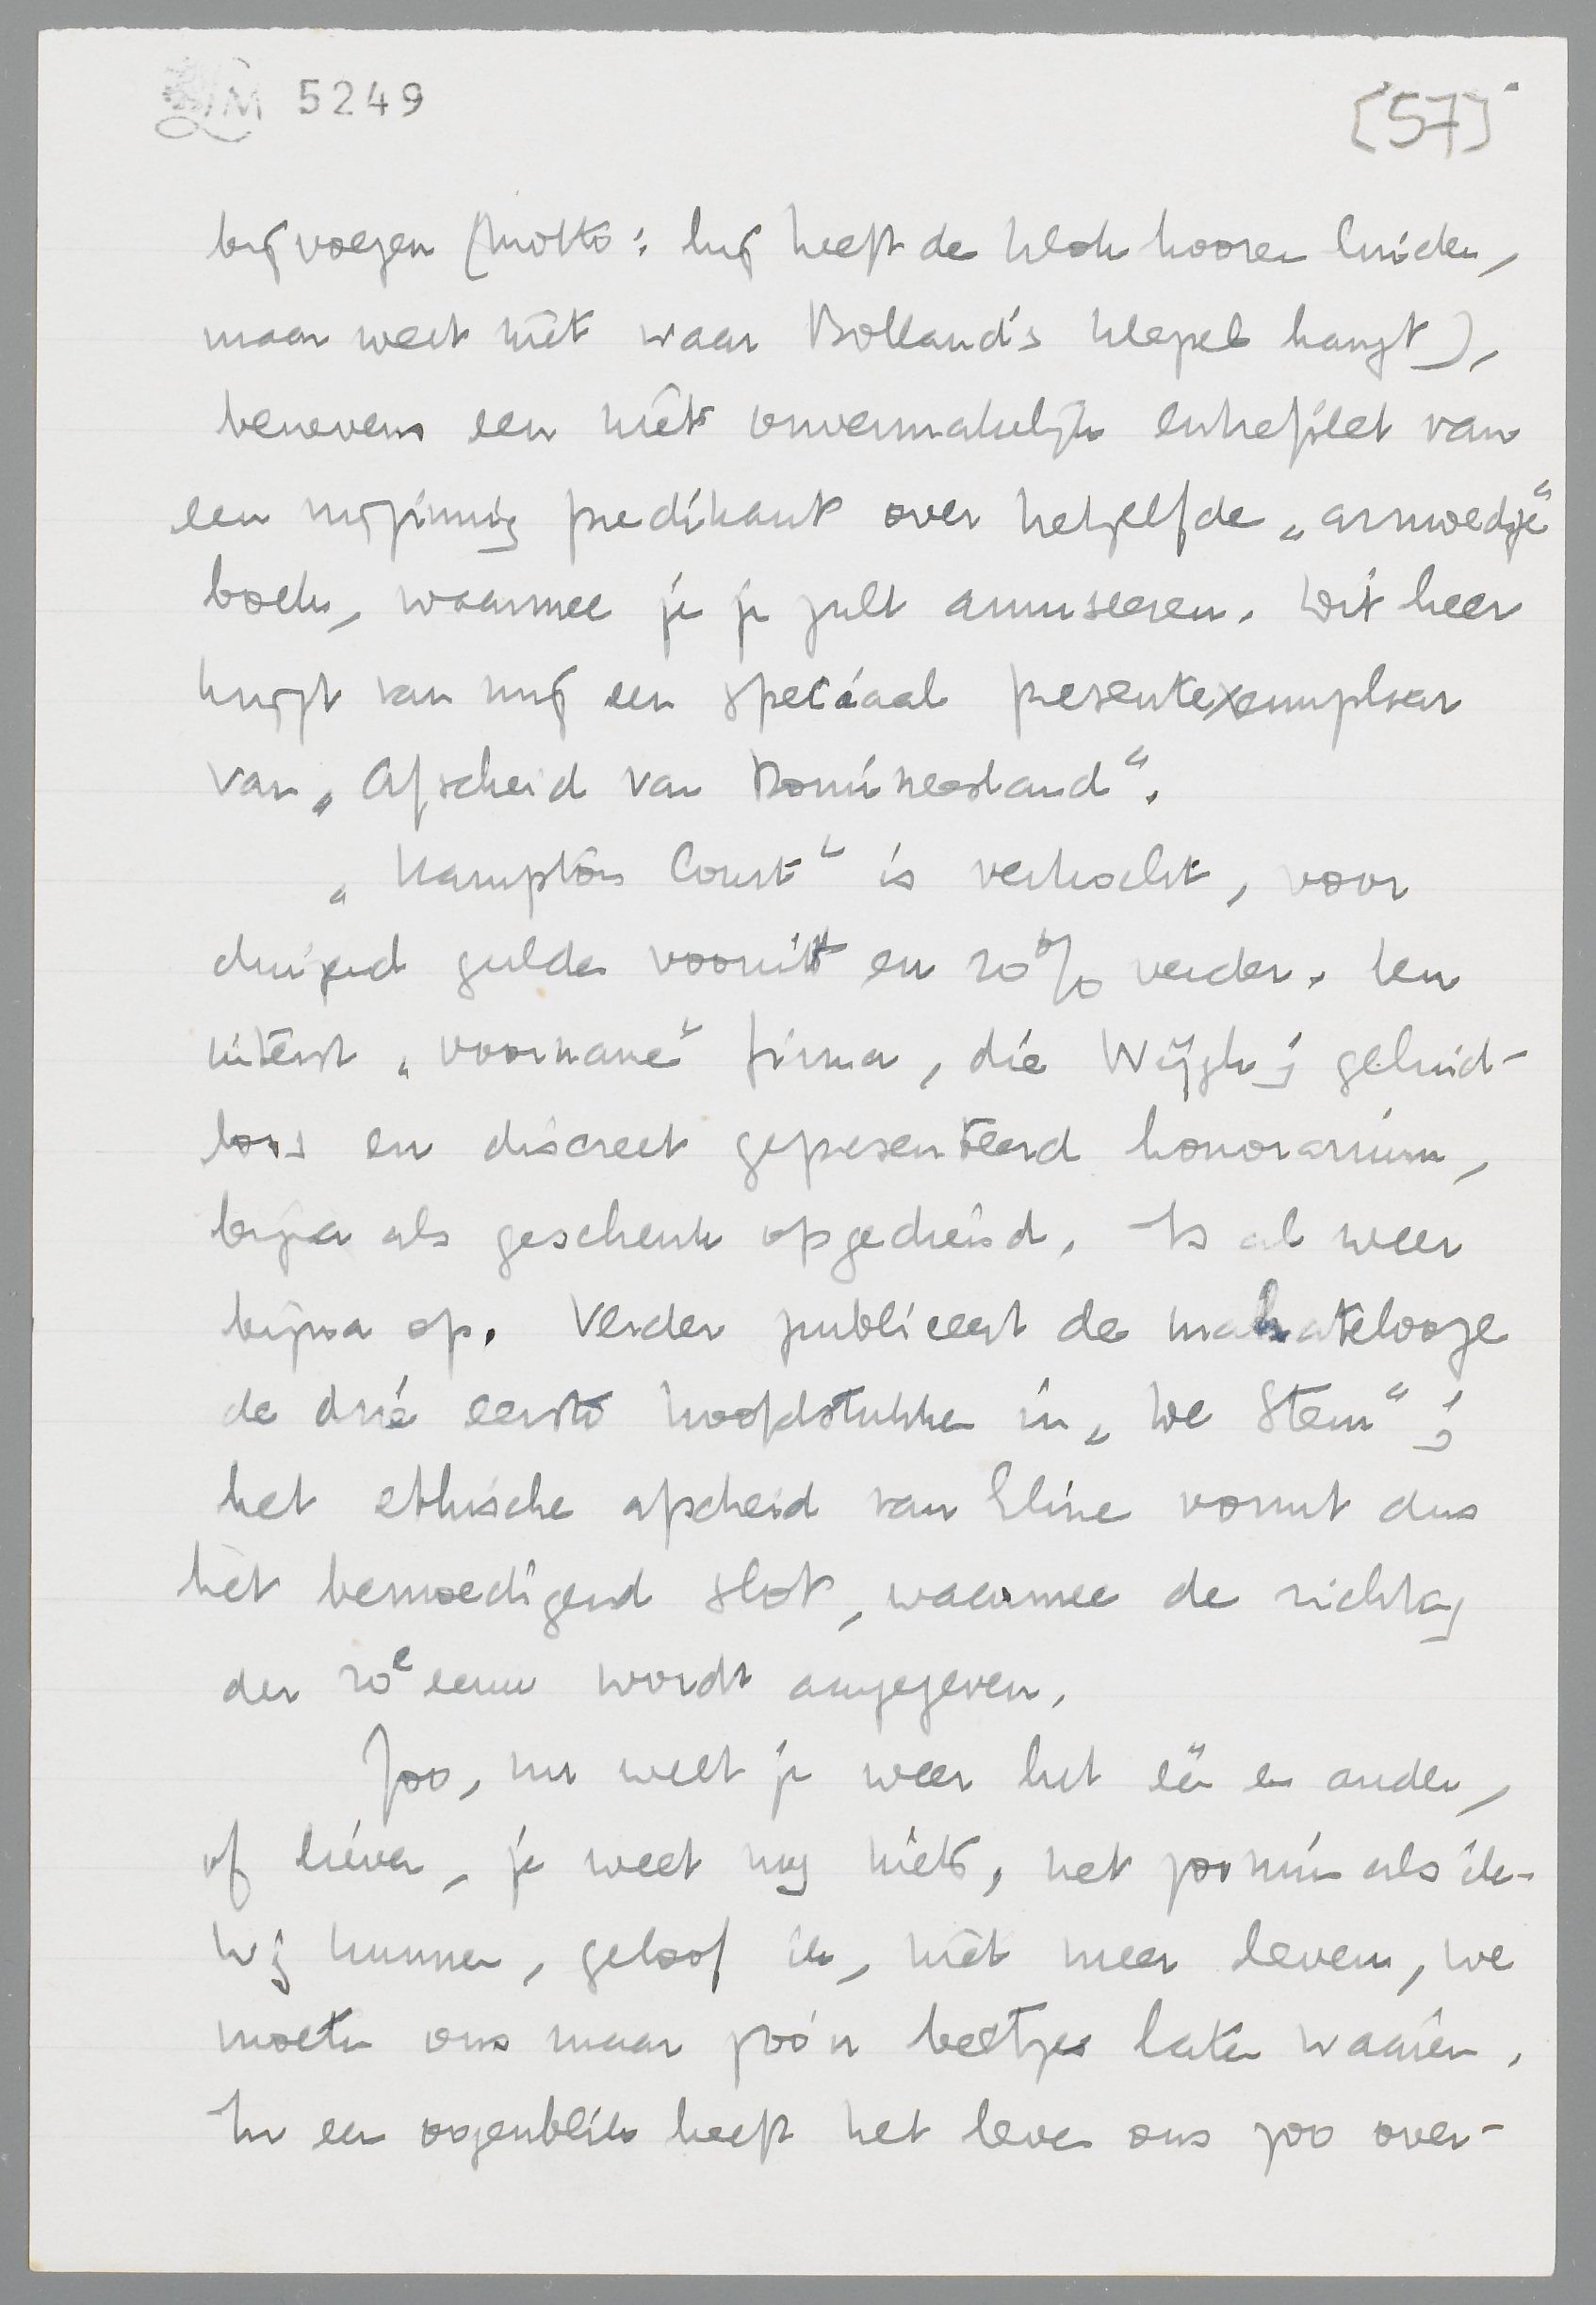 LM 5249
[57]
bijvoegen (motto: hij heeft de klok hooren luiden,
maar weet niet waar Bolland's klepel hangt),
benevens een niet onvermakelijk entrefilet van
een vrijzinnig predikant over hetzelfde „armoedige"
boek, waarmee je je zult amuseeren. Dit heer
krijgt van mij een speciaal presentexemplaar
van „Afscheid van Domineesland".
„Hampton Court" is verkocht, voor
duizend gulden vooruit en 20% verder. Een
uiterst „voorname" firma, die Nijgh; geluid-
loos en discreet gepresenteerd honorarium,
bijna als geschenk opgediend. Is al weer
bijna op. Verder publiceert de makatelooze
de drie eerste hoofdstukken in „De Stem";
het ethische afscheid van Eline vormt dus
het bemoedigend slot, waarmee de richting
der 20e eeuw wordt aangegeven.
Zoo, nu weet je weer het één en ander,
of liever, je weet nog niets, net zoo min als ik.
Wij kunnen, geloof ik, niet meer leven, we
moeten ons maar zoo'n beetje laten waaien.
In een oogenblik heeft het leven ons zoo over-